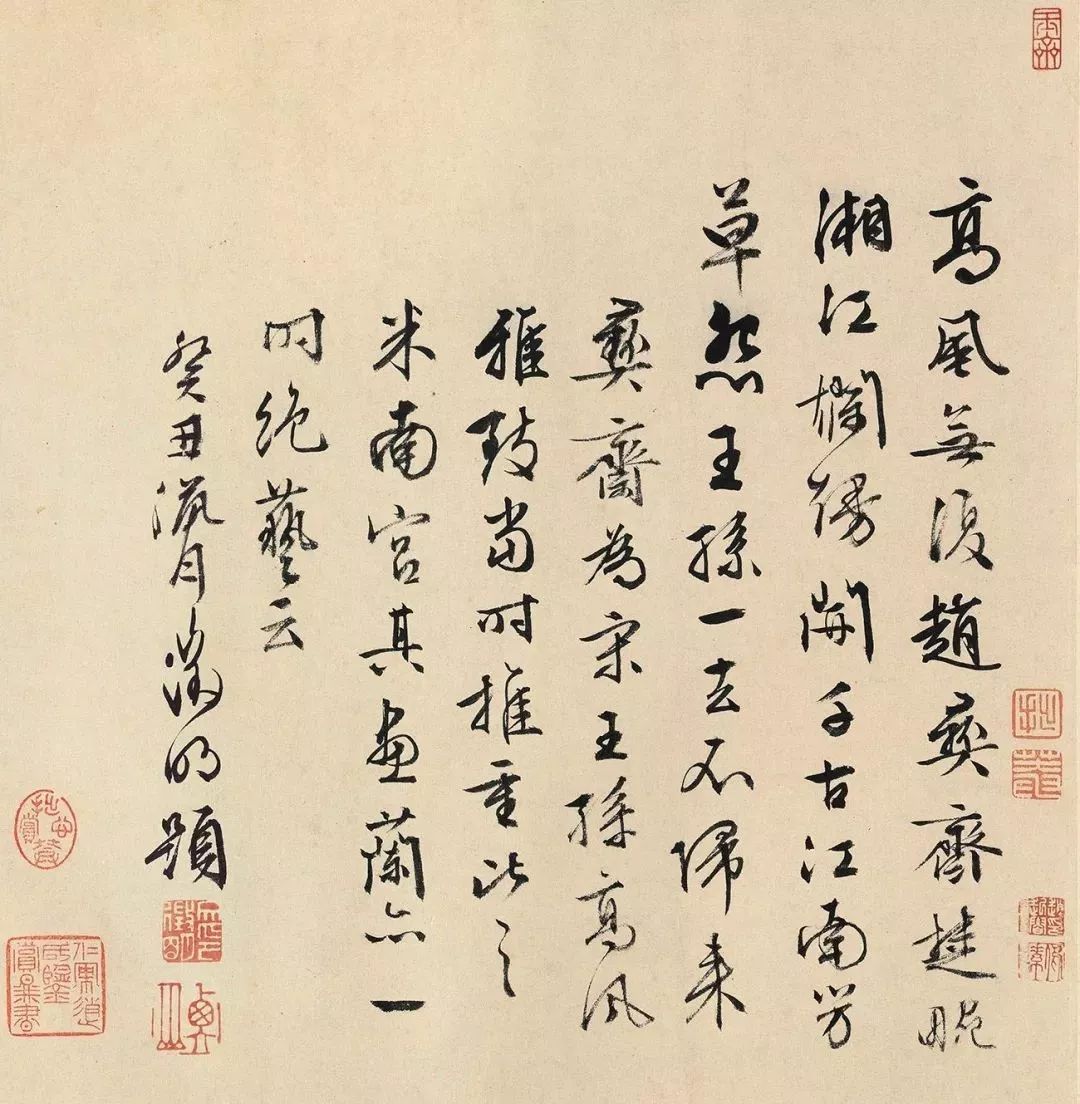 高風無復趙彝齋楚畹
湘江爛熳開千古江南芳
草怨王孫一去不歸來
彝齋為宋王孫高風
雅致當时推重比之
米南宮其畫蘭亦一
时絶藝云
癸丑臘月徵明題
衡山